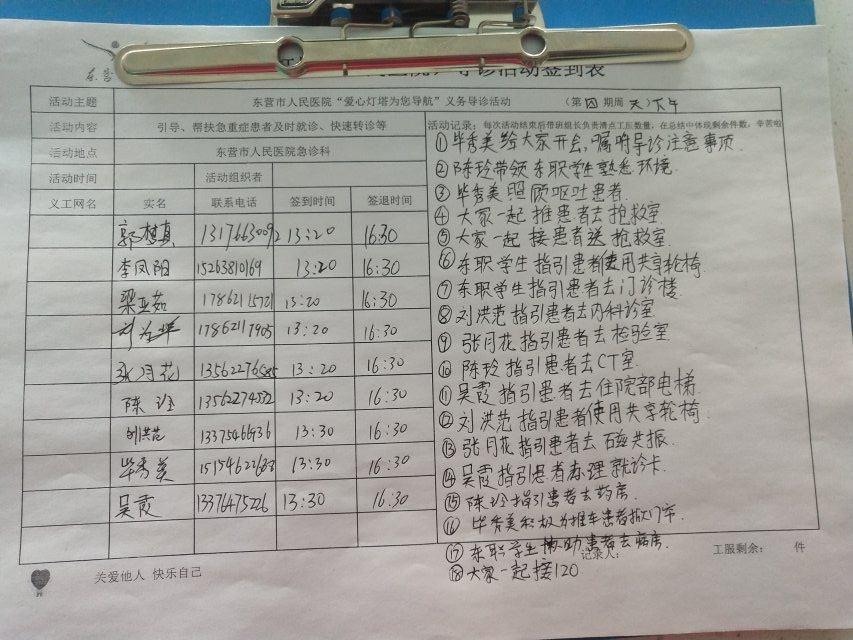 东营
导诊活动签到表
活动主题 东营市人民医院“爱心灯塔为您导航”义务导诊活动 (第四期周六)下午
活动内容 引导、帮扶急重症患者及时就诊、快速转诊等
活动地点 东营市人民医院急诊科
活动时间 活动组织者
义工网名 实名 联系电话 签到时间 签退时间
13:20 16:30
李凤阳 15263810169 13:20 16:30
梁亚茹 17862115721 13:20 16:30
17862117905 13:20 16:30
张月花 13:20 16:30
陈玲 13562274532 13:20 16:30
刘洪范 13375466936 13:30 16:30
毕秀美 13:30 16:30
吴霞 13376475226 13:30 16:30
活动记录:每次活动结束后带班组长负责清点工医数量,在总结中体现剩余件数,辛苦啦
①毕秀美给大家开会,嘱咐导诊注意事项.
②陈玲带领东职学生熟悉环境.
③毕秀美照顾呕吐患者.
④大家一起推患者去抢救室.
⑤大家一起接患者送抢救室.
⑥东职学生指引患者使用共享轮椅
⑦东职学生指引患者去门诊楼.
⑧刘洪范指引患者去内科诊室
⑨张月花指引患者去检验室
⑩陈玲指引患者去CT室.
⑪吴霞指引患者去住院部电梯
⑫刘洪范指引患者使用共享轮椅.
⑬张月花指引患者去磁共振.
⑭吴霞指引患者办理就诊卡.
⑮陈玲指引患者去药房.
⑯毕秀美积极为推车患者掀门帘.
⑰东职学生协助患者去病房.
⑱大家一起接120
记录人: 工服剩余: 件
关爱他人 快乐自己